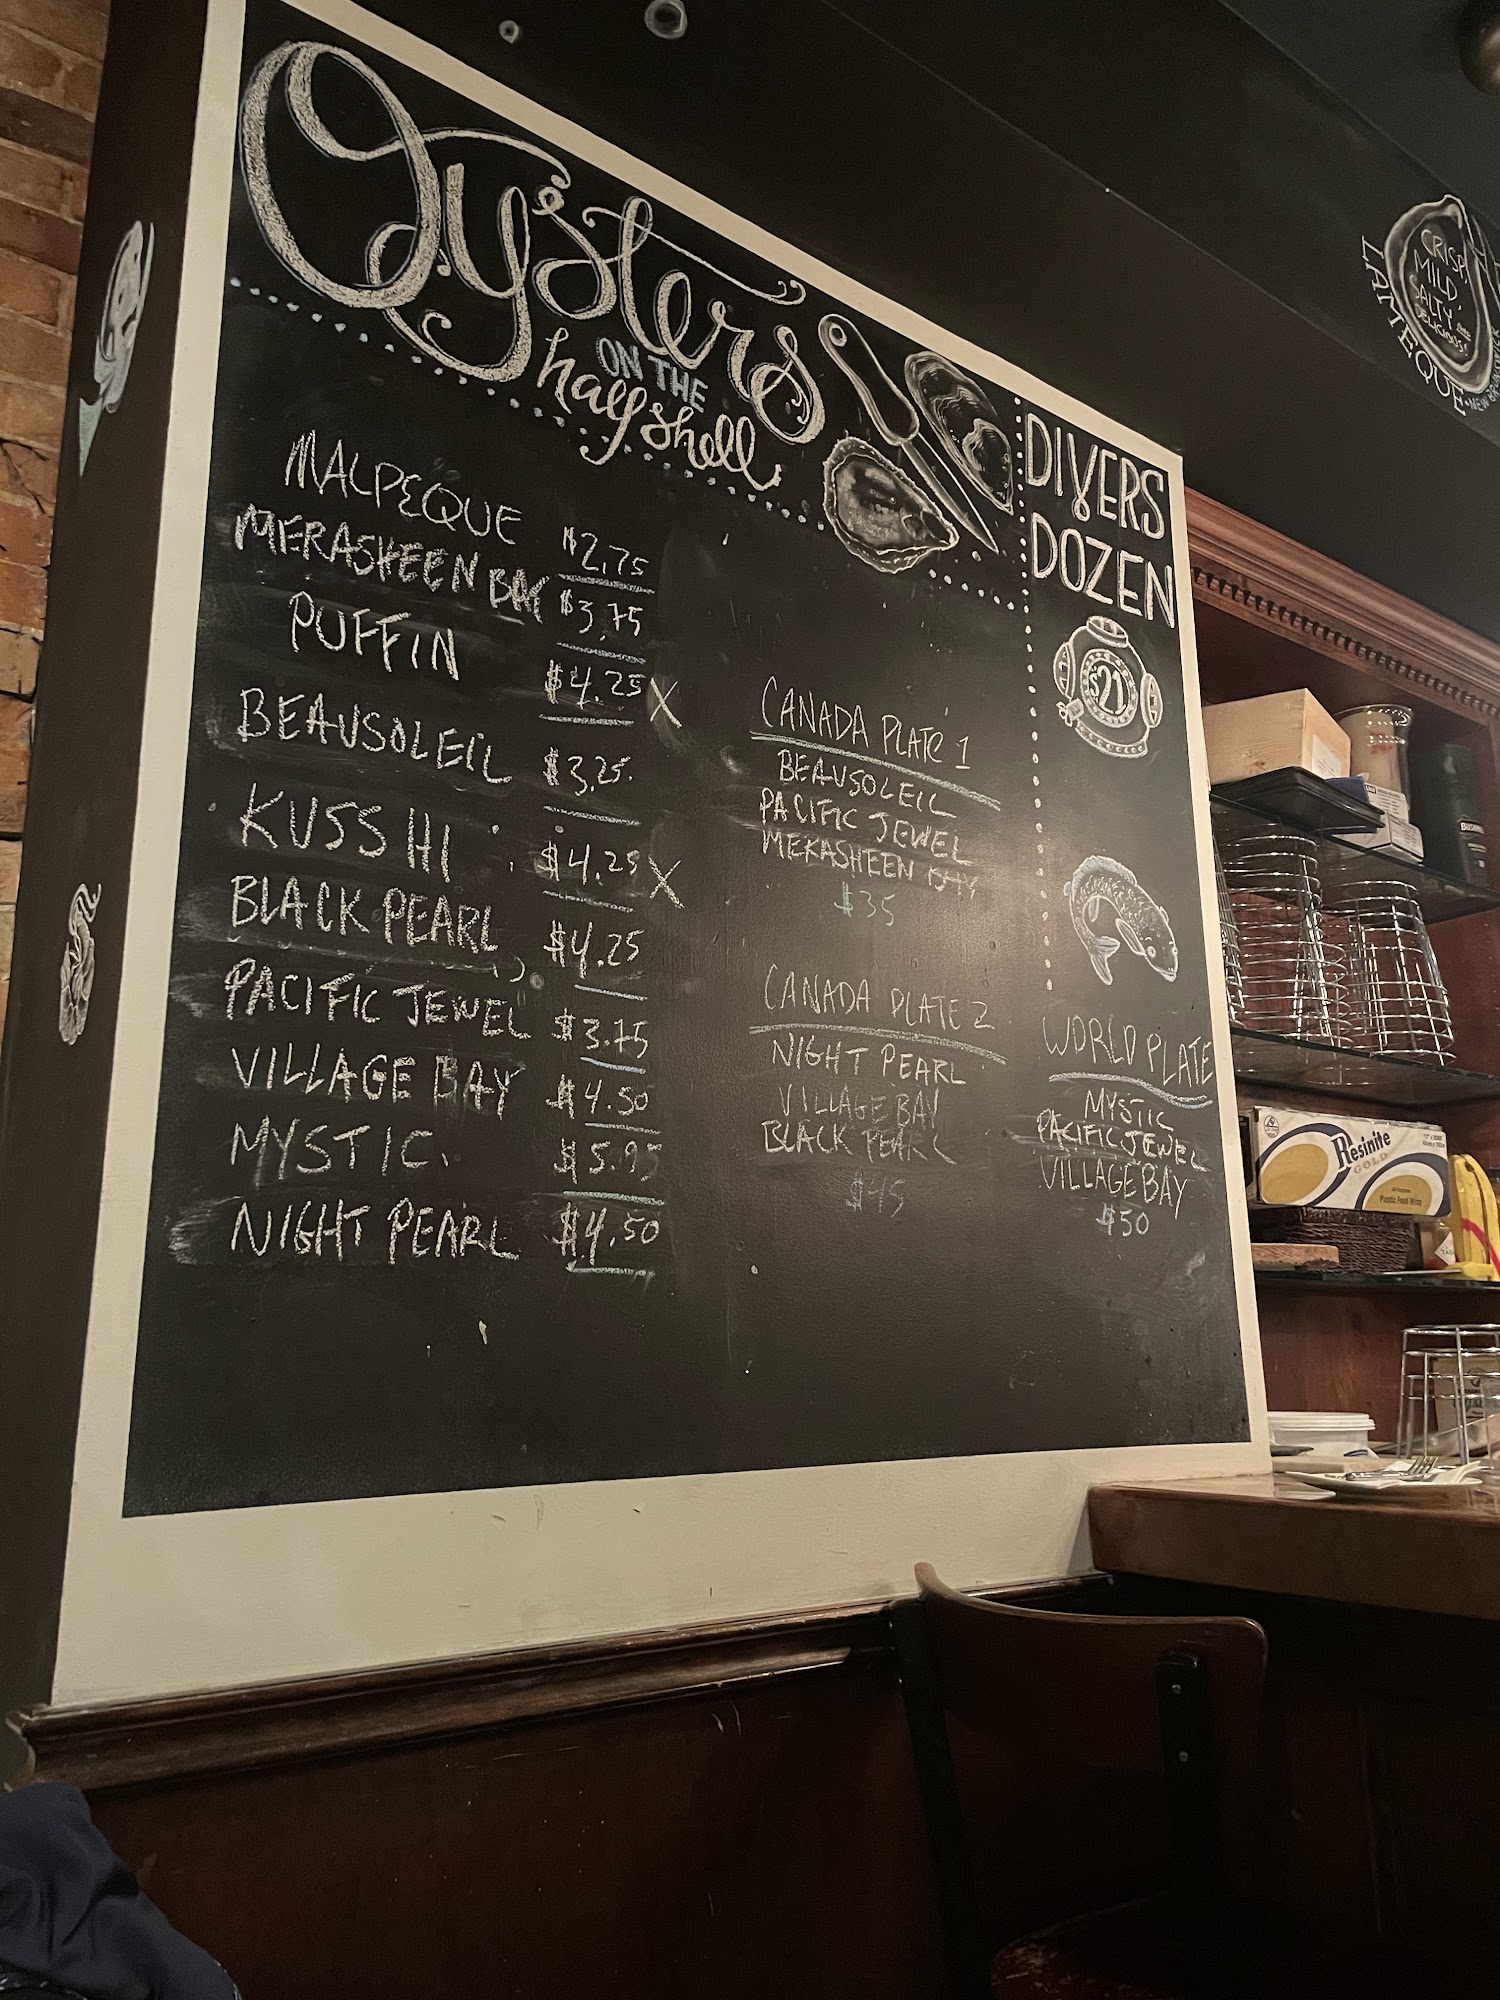 Oysters
ON THE
half shell
MALPEQUE $2.75
MERASHEEN BAY $3.75
PUFFIN $4.25 X
BEAUSOLEIL $3.25.
KUSSHI $4.25 X
BLACK PEARL $4.25
PACIFIC JEWEL $3.75
VILLAGE BAY $4.50
MYSTIC. $5.95
NIGHT PEARL $4.50
CANADA PLATE 1
BEAUSOLEIL
PACIFIC JEWEL
MERASHEEN BAY
$35
CANADA PLATE 2
NIGHT PEARL
VILLAGE BAY
BLACK PEARL
$45
DIVERS
DOZEN
$21
WORLD PLATE
MYSTIC
PACIFIC JEWEL
VILLAGE BAY
$50
CRISP,
MILD,
SALTY AND
DELICIOUS!
LAMEQUE
Resinite
GOLD
Plastic Food Wrap